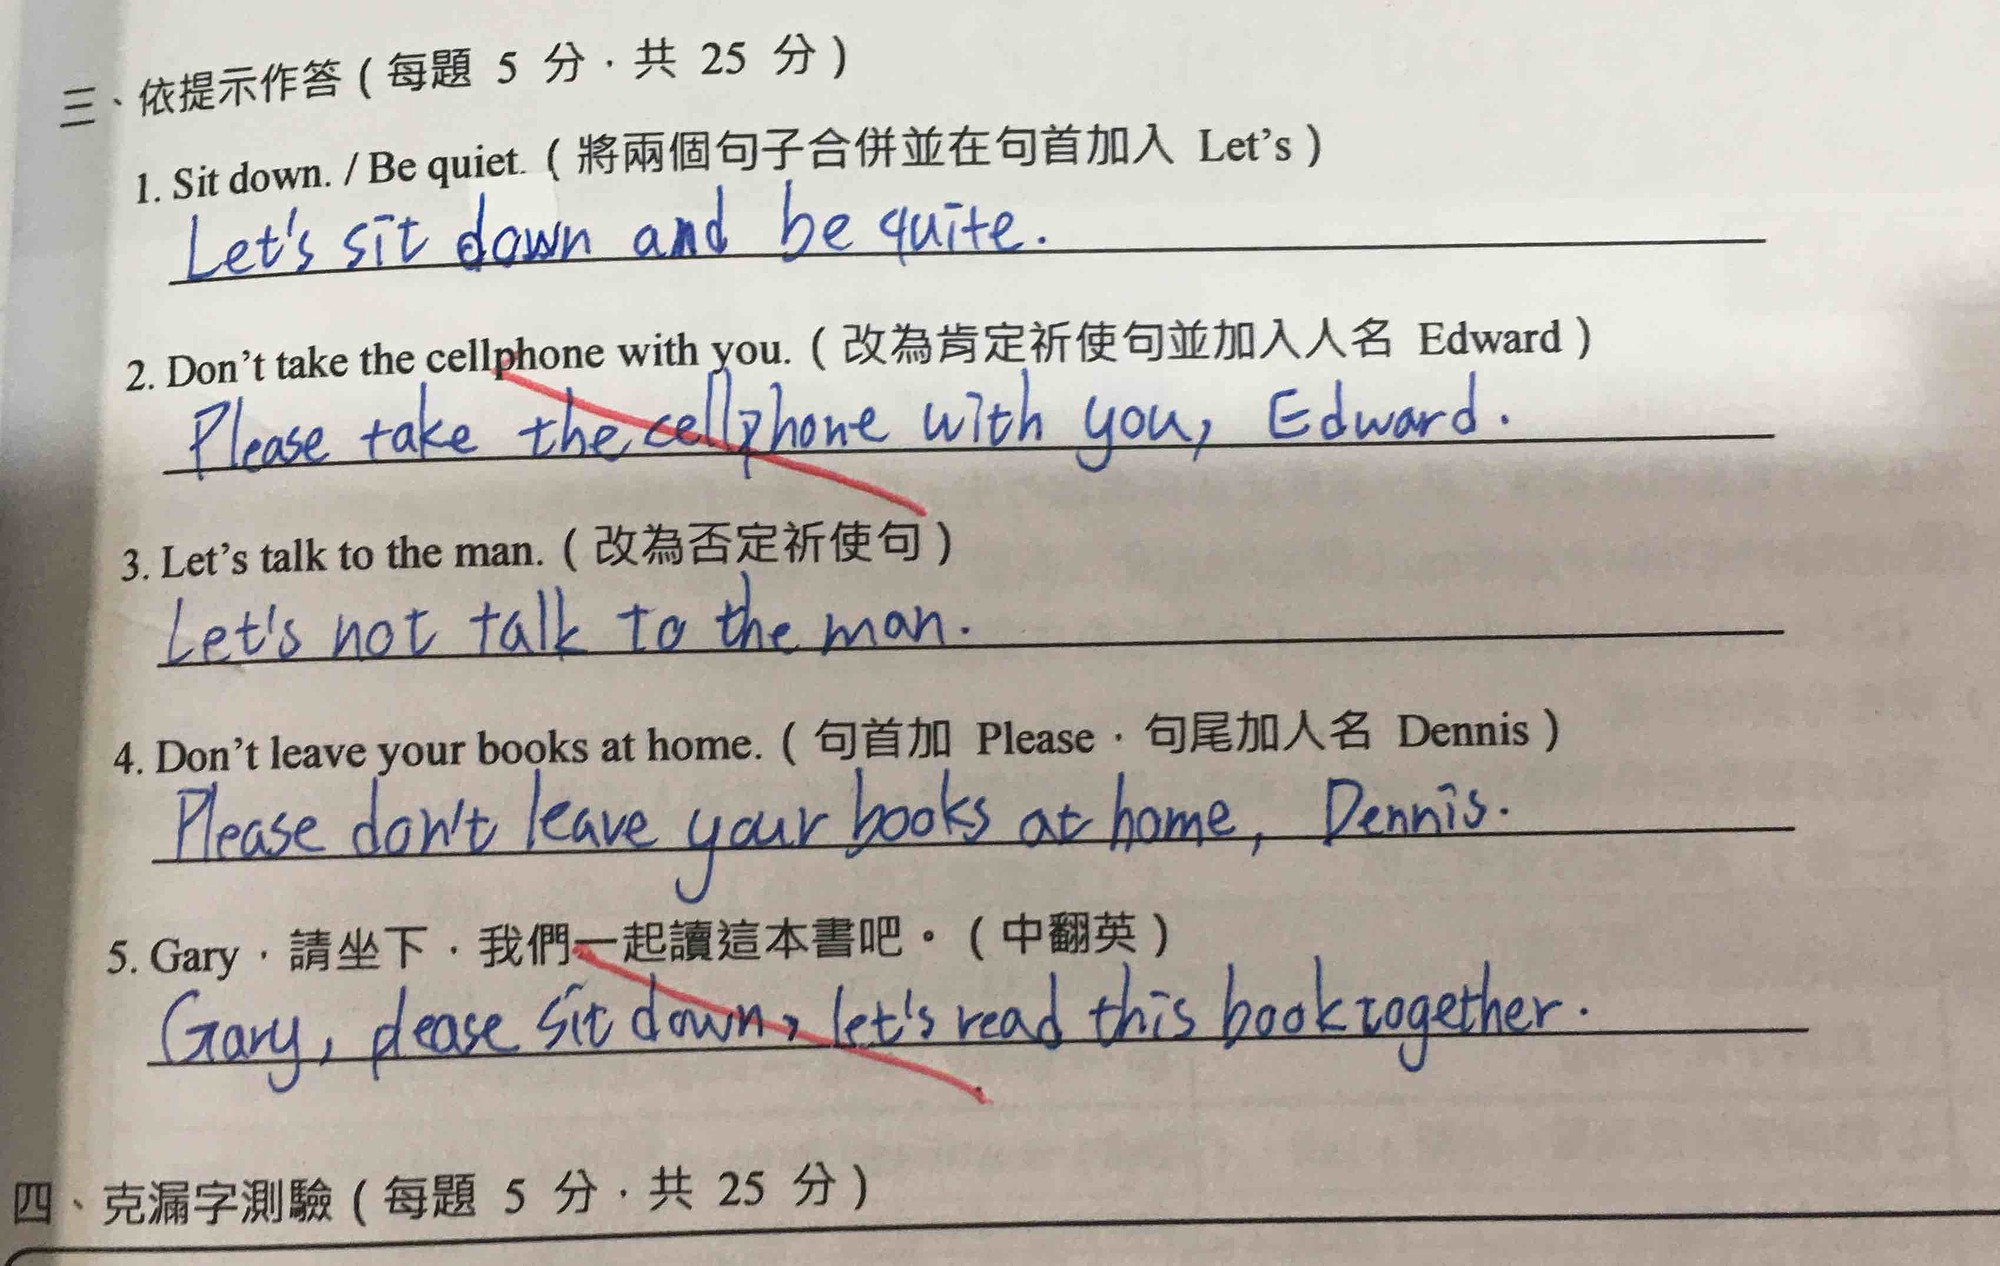 三、依提示作答（每題 5 分，共 25 分）
1. Sit down. / Be quiet.（將兩個句子合併並在句首加入 Let's）
Let's sit down and be quite.
2. Don't take the cellphone with you.（改為肯定祈使句並加入人名 Edward）
Please take the cellphone with you, Edward.
3. Let's talk to the man.（改為否定祈使句）
Let's not talk to the man.
4. Don't leave your books at home.（句首加 Please，句尾加人名 Dennis）
Please don't leave your books at home, Dennis.
5. Gary，請坐下，我們一起讀這本書吧。（中翻英）
Gary, please sit down, let's read this book together.
四、克漏字測驗（每題 5 分，共 25 分）